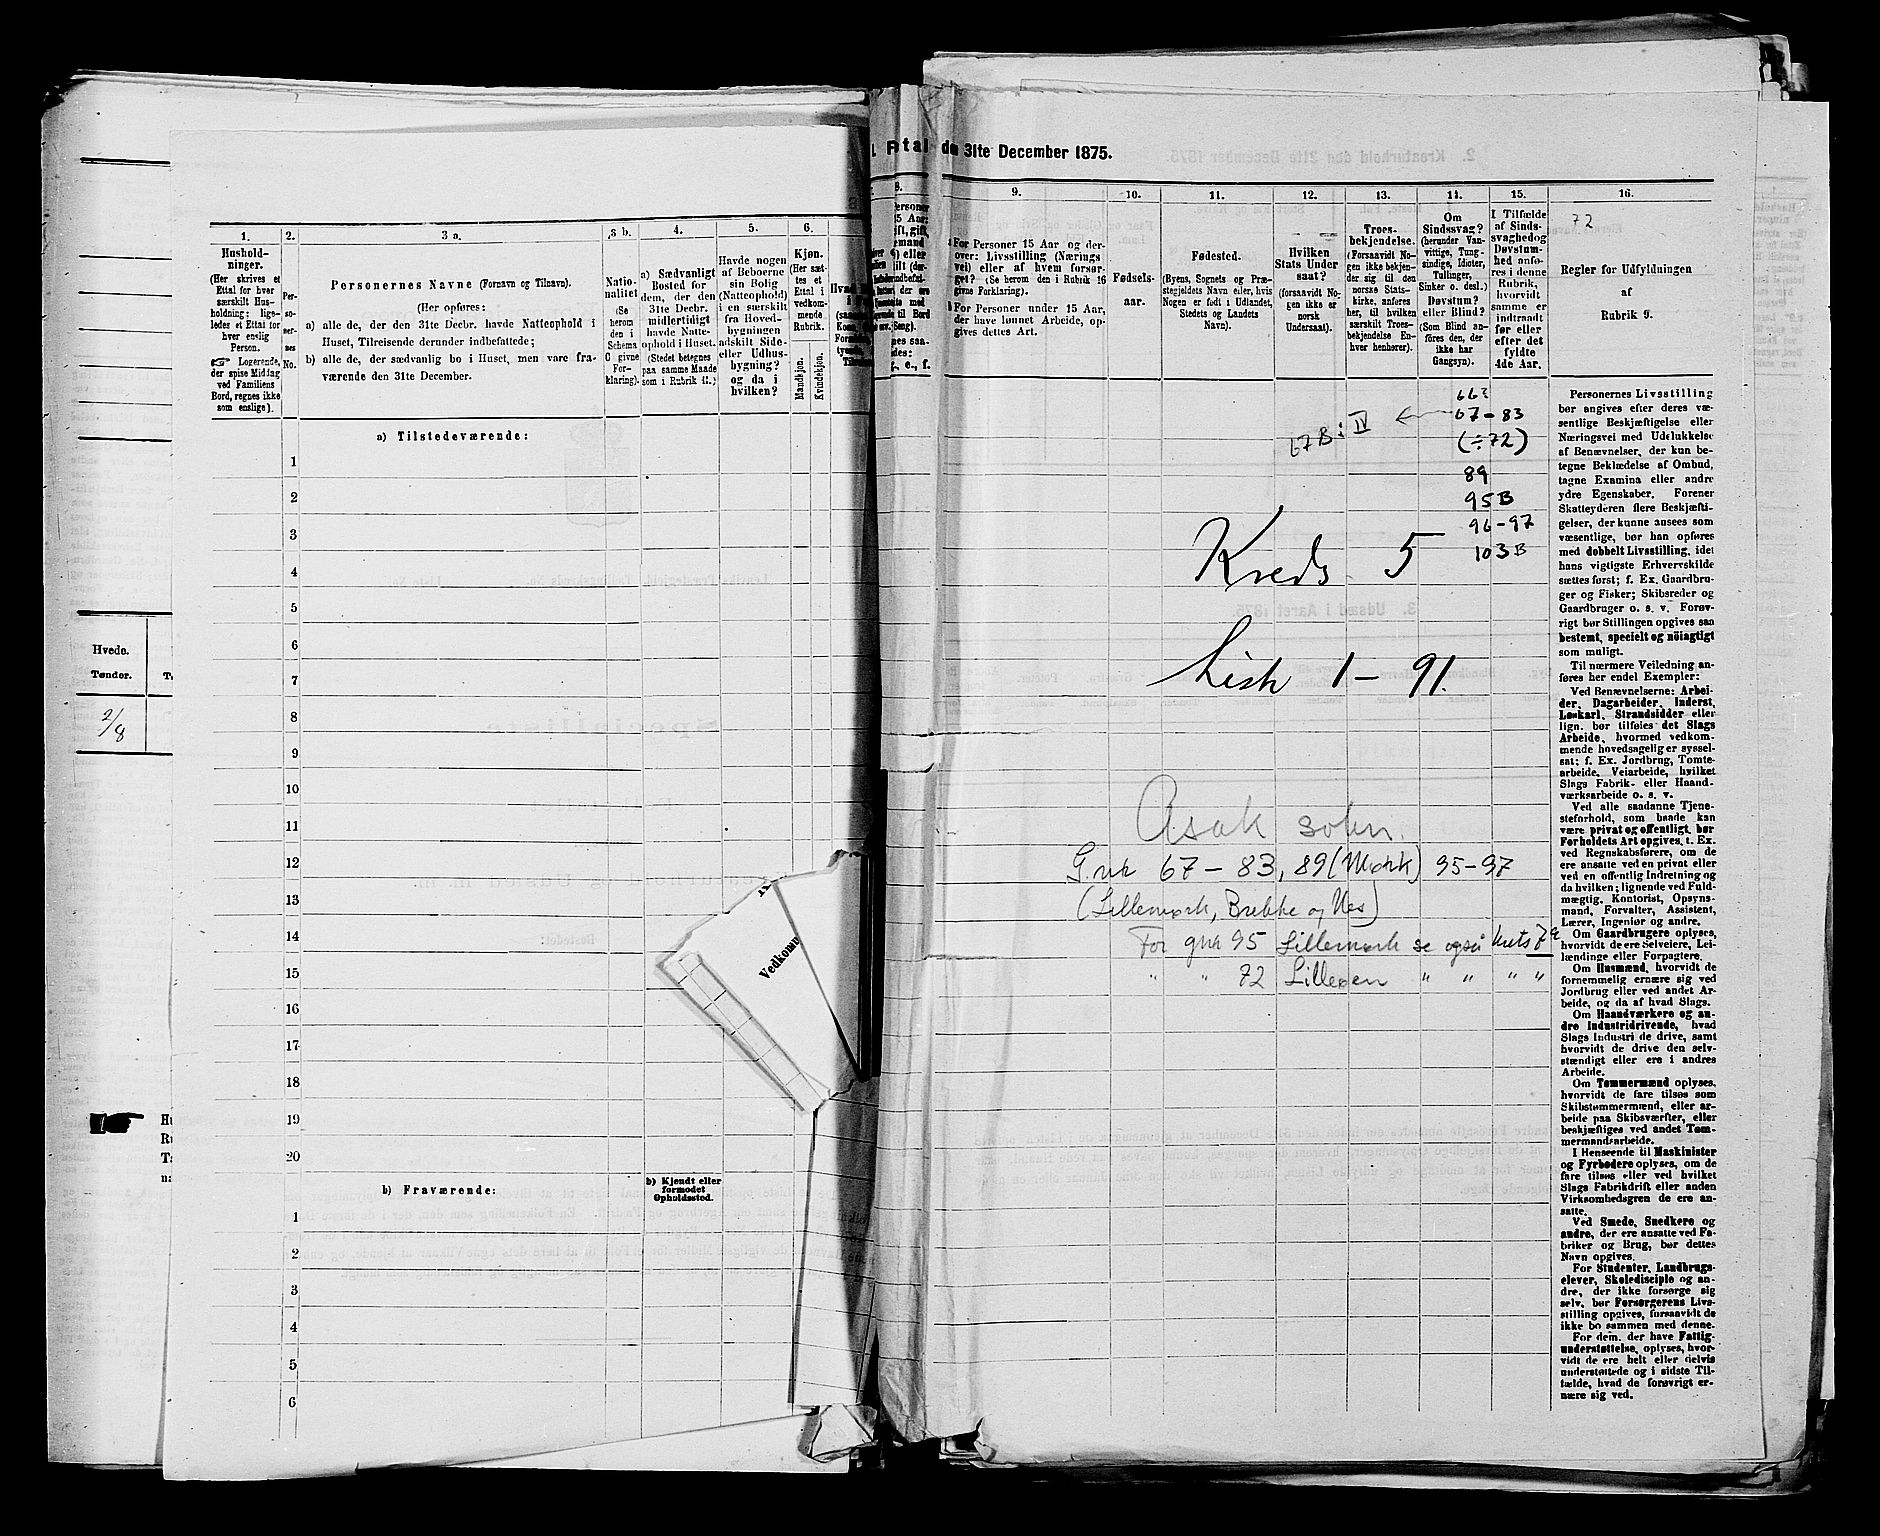 Hvede.
Tønder.
2/8
1.
Hushold-
ninger.
(Her skrives et
Ettal for hver
særskilt Hus-
holdning; lige-
ledes et Ettal for
hver enslig
Person.
☞ Logerende,
der spise Middag
ved Familiens
Bord, regnes ikke
som enslige).
2.
Per-
so-
ner-
nes
No.
3 a.
Personernes Navne (Fornavn og Tilnavn).
(Her opføres:
a) alle de, der den 31te Decbr. havde Natteophold i
Huset, Tilreisende derunder indbefattede;
b) alle de, der sædvanlig bo i Huset, men vare fra-
værende den 31te December.
3 b.
Natio-
nalitet
(Se
herom
den i
Schema
C givne
For-
klaring).
4.
a) Sædvanligt
Bosted for
dem, der den
31te Decbr.
midlertidigt
havde Natte-
ophold i Huset.
(Stedet betegnes
paa samme Maade
som i Rubrik 11.)
5.
Havde nogen
af Beboerne
sin Bolig
(Natteophold)
i en særskilt
fra Hoved-
bygningen
adskilt Side-
eller Udhus-
bygning?
og da i
hvilken?
6.
Kjøn.
(Her sæt-
tes et
Ettal i
vedkom-
mende
Rubrik.
Mandkjøn.
Kvindekjøn.
a) Tilstedeværende:
1
2
3
4
5
6
7
8
9
10
11
12
13
14
15
16
17
18
19
20
b) Fraværende:
b) Kjendt eller
formodet
Opholdssted.
1
2
3
4
5
6
Vedkomm
31te December 1875.
8.
9.
For Personer 15 Aar og der-
over: Livsstilling (Nærings-
vei) eller af hvem forsør-
get? (Se herom den i Rubrik 16
givne Forklaring).
For Personer under 15 Aar,
der have lønnet Arbeide, op-
gives dettes Art.
10.
Fødsels-
aar.
11.
Fødested.
(Byens, Sognets og Præ-
stegjeldets Navn eller, hvis
Nogen er født i Udlandet,
Stedets og Landets
Navn).
12.
Hvilken
Stats Under
saat?
(forsaavidt No-
gen ikke er
norsk
Undersaat).
13.
Troes-
bekjendelse.
(Forsaavidt No-
gen ikke bekjen-
der sig til den
norske Stats-
kirke, anføres
her, til hvilken
særskilt Troes-
bekjendelse En-
hver henhører).
14.
Om
Sindssvag?
(herunder Van-
vittige, Tung-
sindige, Idioter,
Tullinger,
Sinker o. desl.)
Døvstum?
eller Blind?
(Som Blind an-
føres den, der
ikke har
Gangsyn).
15.
I Tilfælde
af Sinds-
svaghed og
Døvstum-
hed anfø-
res i denne
Rubrik,
hvorvidt
samme er
indtraadt
før eller
efter det
fyldte
4de Aar.
16.
72
Regler for Udfyldningen
af
Rubrik 9.
66?
67 - 83
67B: IV
(÷72)
89
95B
96-97
103B
Kreds 5
Liste 1 - 91.
Asak sokn.
G.nr 67 - 83, 89 (Mørk) 95-97
(Lillemørk, Brekke og Nes)
For gnr 95 Lillemørk se også krets 7a
" " 72 Lilleøen " " " "
Personernes Livsstilling
bør angives efter deres væ-
sentlige Beskjæftigelse eller
Næringsvei med Udelukkelse
af Benævnelser, der kun be-
tegne Beklædelse af Ombud,
tagne Examina eller andre
ydre Egenskaber. Forener
Skatteyderen flere Beskjæfti-
gelser, der kunne ansees som
væsentlige, bør han opføres
med dobbelt Livsstilling, idet
hans vigtigste Erhvervskilde
sættes først; f. Ex. Gaardbru-
ger og Fisker; Skibsreder og
Gaardbruger o. s. v. Forøv-
rigt bør Stillingen opgives saa
bestemt, specielt og nöiagtigt
som muligt.
Til nærmere Veiledning an-
føres her endel Exempler:
Ved Benævnelserne: Arbei-
der, Dagarbeider, Inderst,
Løskarl, Strandsidder eller
lign. bør tilføies det Slags
Arbeide, hvormed vedkom-
mende hovedsagelig er syssel-
sat; f. Ex. Jordbrug, Tomte-
arbeide, Veiarbeide, hvilket
Slags Fabrik- eller Haand-
værksarbeide o. s. v.
Ved alle saadanne Tjene-
steforhold, som baade kan
være privat og offentligt, bør
Forholdets Art opgives, t. Ex.
ved Regnskabsførere, om de
ere ansatte ved en privat eller
ved en offentlig Indretning og
da hvilken; lignende ved Fuld-
mægtig, Kontorist, Opsyns-
mand, Forvalter, Assistent,
Lærer, Ingeniør og andre.
Om Gaardbrugere oplyses,
hvorvidt de ere Selveiere, Lei-
lændinge eller Forpagtere.
Om Husmænd, hvorvidt de
fornemmelig ernære sig ved
Jordbrug eller ved andet Ar-
beide, og da af hvad Slags.
Om Haandværkere og an-
dre Industridrivende, hvad
Slags Industri de drive, samt
hvorvidt de drive den selv-
stændigt eller ere i andres
Arbeide.
Om Tømmermænd oplyses,
hvorvidt de fare tilsøs som
Skibstømmermænd, eller ar-
beide paa Skibsværfter, eller
beskjæftiges ved andet Tøm-
mermandsarbeide.
I Henseende til Maskinister
og Fyrbødere oplyses, om de
fare tilsøs eller ved hvilket
Slags Fabrikdrift eller anden
Virksomhedsgren de ere an-
satte.
Ved Smede, Snedkere og
andre, der ere ansatte ved Fa-
briker og Brug, bør dettes
Navn opgives.
For Studenter, Landbrugs-
elever, Skoledisciple og an-
dre, der ikke forsørge sig
selv, bør Forsørgerens Livs-
stilling opgives, forsaavidt de
ikke bo sammen med denne.
For dem, der have Fattig-
understøttelse, oplyses, hvor-
vidt de ere helt eller delvis
understøttede og i sidste Til-
fælde, hvad de forøvrigt er-
nære sig ved.